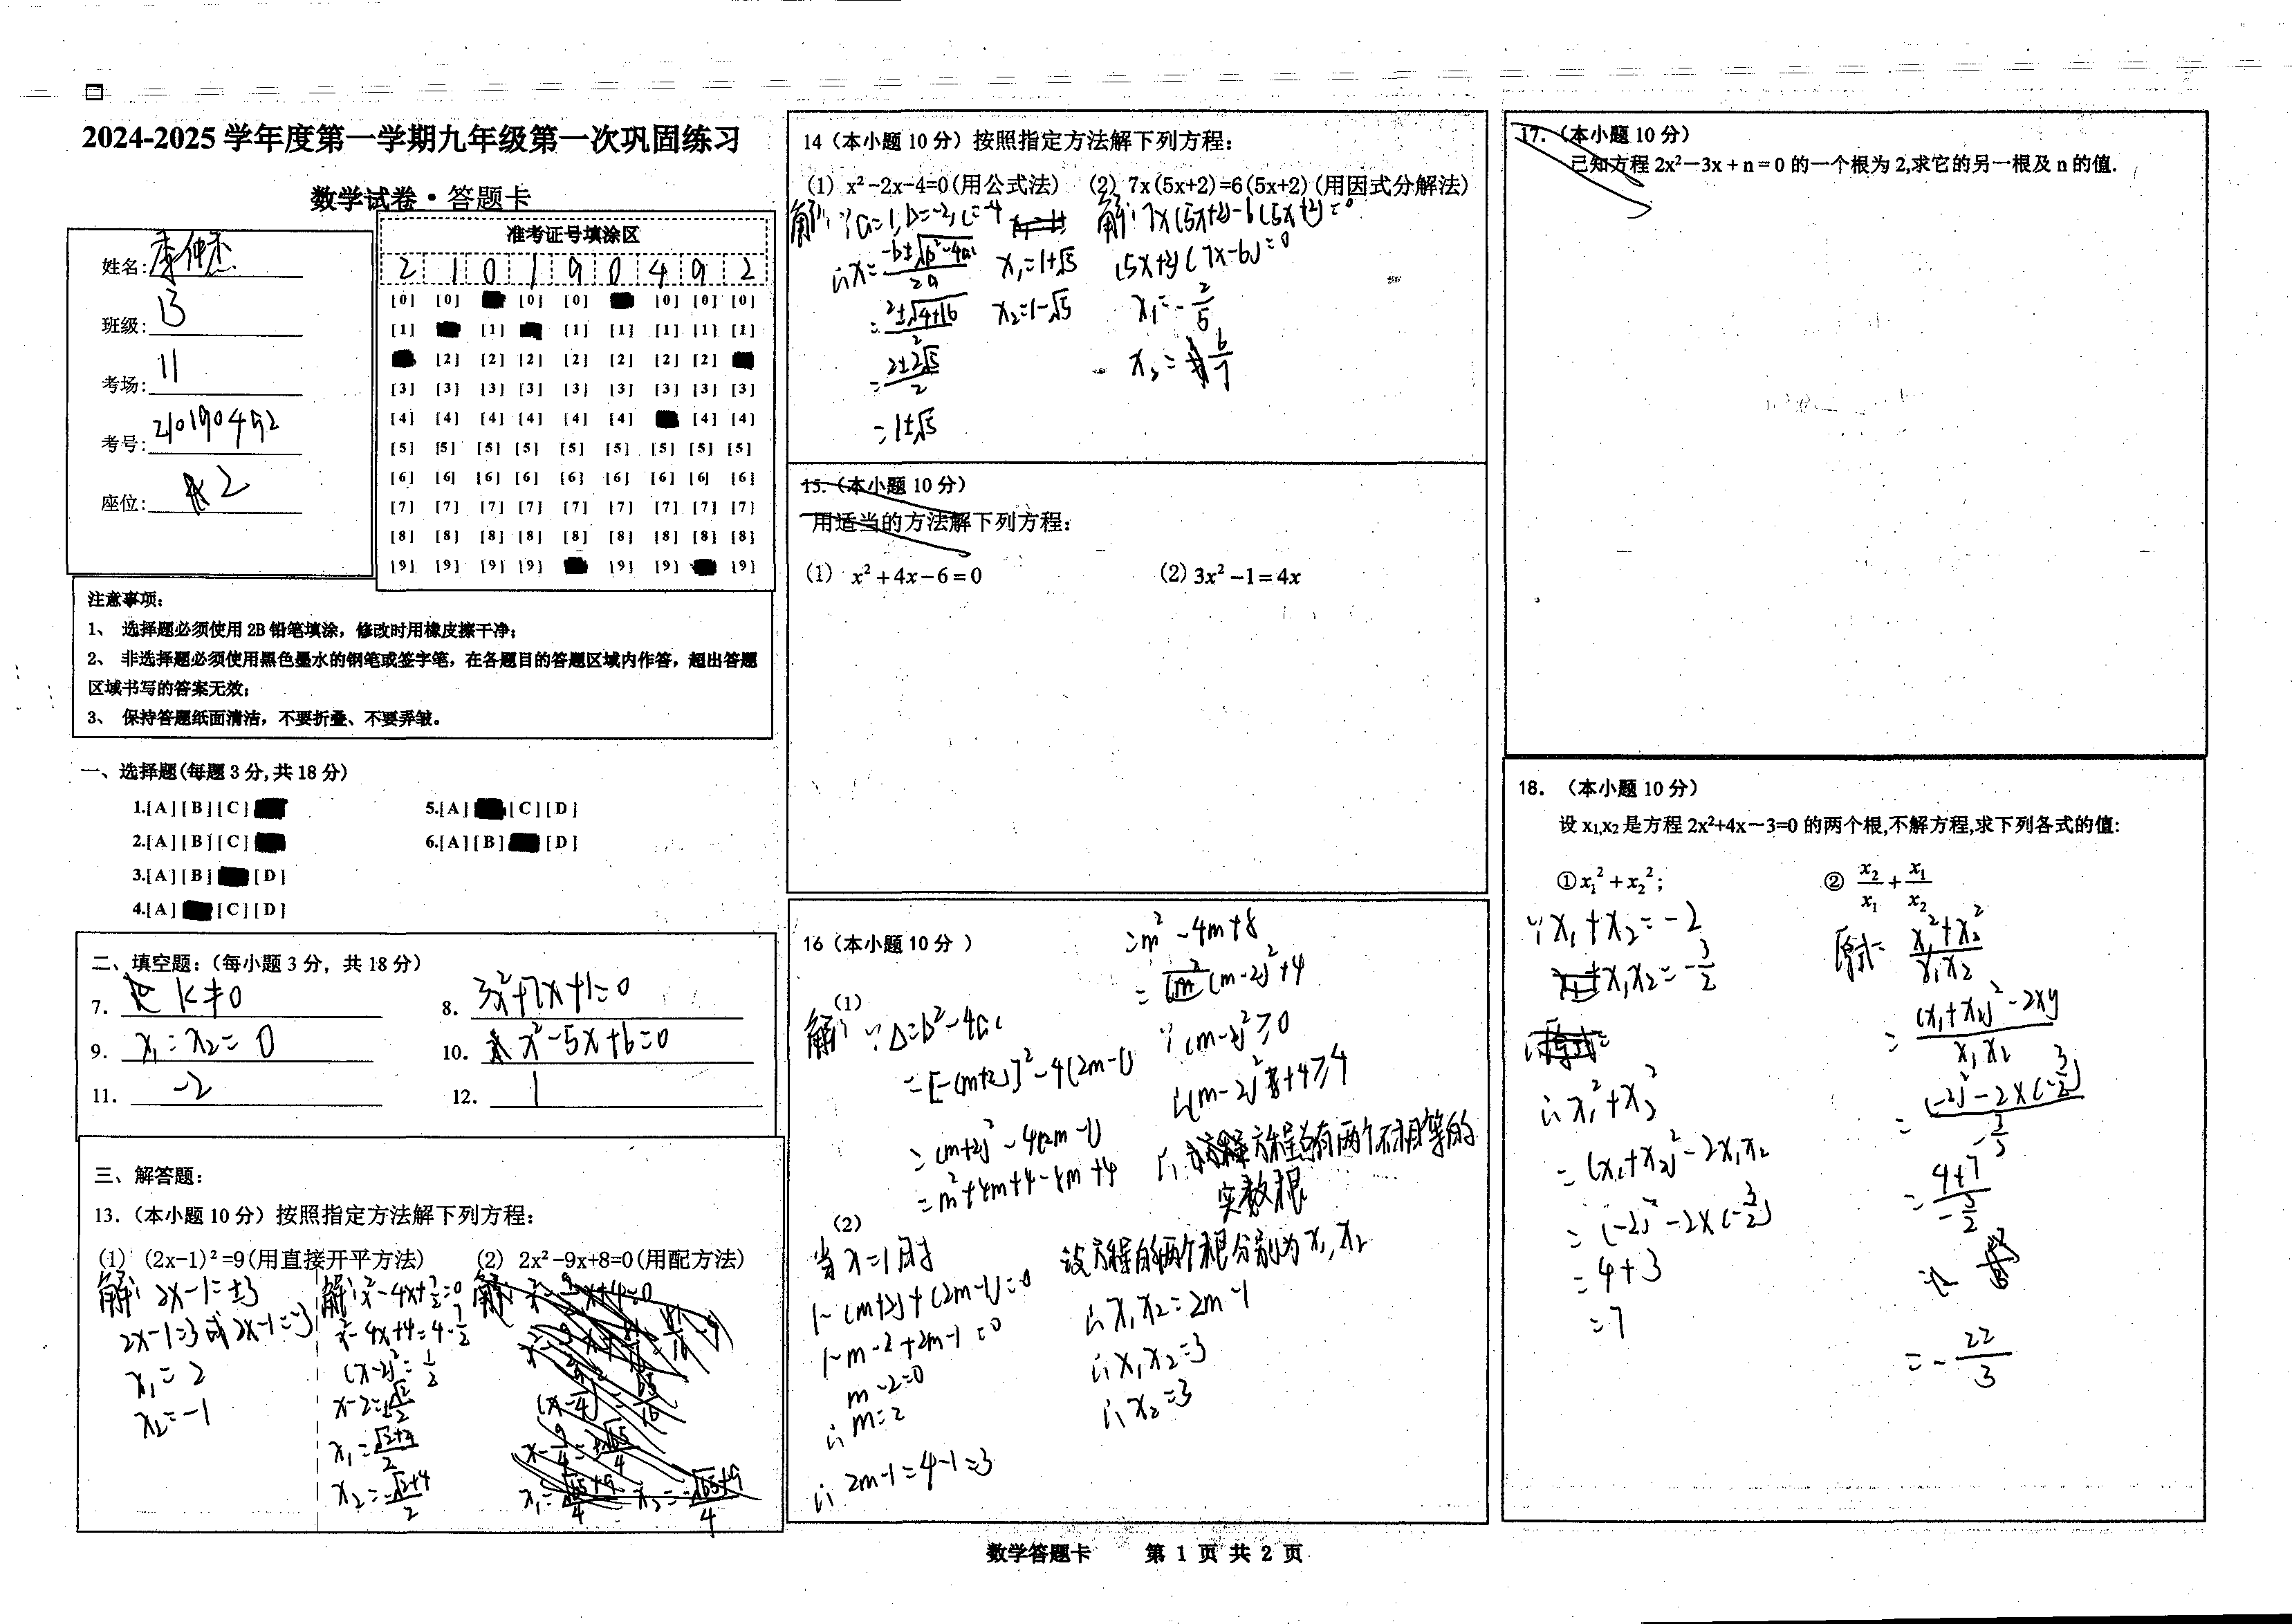 2024-2025 学年度第一学期九年级第一次巩固练习
数学试卷·答题卡
姓名:
班级: 13
考场: 11
考号: 210190492
座位: 2
准考证号填涂区
2 1 0 1 9 0 4 9 2
[0] [0] [0] [0] [0] [0] [0]
[1] [1] [1] [1] [1] [1] [1]
[2] [2] [2] [2] [2] [2] [2]
[3] [3] [3] [3] [3] [3] [3] [3] [3]
[4] [4] [4] [4] [4] [4] [4] [4]
[5] [5] [5] [5] [5] [5] [5] [5] [5]
[6] [6] [6] [6] [6] [6] [6] [6] [6]
[7] [7] [7] [7] [7] [7] [7] [7] [7]
[8] [8] [8] [8] [8] [8] [8] [8] [8]
[9] [9] [9] [9] [9] [9] [9]
注意事项:
1、 选择题必须使用 2B 铅笔填涂，修改时用橡皮擦干净;
2、 非选择题必须使用黑色墨水的钢笔或签字笔，在各题目的答题区域内作答，超出答题
区域书写的答案无效;
3、 保持答题纸面清洁，不要折叠、不要弄皱。
一、选择题(每题 3 分,共 18 分)
1.[A][B][C]
2.[A][B][C]
3.[A][B] [D]
4.[A] [C][D]
5.[A] [C][D]
6.[A][B] [D]
二、填空题:（每小题 3 分，共 18 分）
7. k≠0
8. 3x²+7x+1=0
9. x₁=x₂=0
10. x²-5x+6=0
11. -2
12. 1
三、解答题:
13.（本小题 10 分）按照指定方法解下列方程:
(1) (2x-1)²=9(用直接开平方法)
解: 2x-1=±3
2x-1=3 或 2x-1=-3
x₁=2
x₂=-1
(2) 2x²-9x+8=0(用配方法)
解: x²-4x+7/2=0
x²-4x+4=4-7/2
(x-2)²=1/2
x-2=±√2/2
x₁=(√2+4)/2
x₂=(-√2+4)/2
14（本小题 10 分）按照指定方法解下列方程:
(1) x²-2x-4=0(用公式法)
解: ∵a=1,b=-2,c=-4
∴x=(-b±√(b²-4ac))/2a
=(2±√(4+16))/2
=(2±2√5)/2
=1±√5
x₁=1+√5
x₂=1-√5
(2) 7x(5x+2)=6(5x+2)(用因式分解法)
解: 7x(5x+2)-6(5x+2)=0
(5x+2)(7x-6)=0
x₁=-2/5
x₂=6/7
15.（本小题 10 分）
用适当的方法解下列方程:
(1) x²+4x-6=0
(2) 3x²-1=4x
16（本小题 10 分 ）
(1)
解: ∵Δ=b²-4ac
=[-(m+2)]²-4(2m-1)
=(m+2)²-4(2m-1)
=m²+4m+4-8m+4
=m²-4m+8
=(m-2)²+4
∵(m-2)²≥0
∴(m-2)²+4≥4
∴方程总有两个不相等的
实数根
(2)
当x=1时
1-(m+2)+(2m-1)=0
1-m-2+2m-1=0
m-2=0
∴m=2
∴2m-1=4-1=3
设方程的两个根分别为x₁,x₂
∴x₁x₂=2m-1
∴x₁x₂=3
∴x₂=3
17.（本小题 10 分）
已知方程 2x²-3x+n=0 的一个根为 2,求它的另一根及 n 的值.
18. （本小题 10 分）
设 x₁,x₂ 是方程 2x²+4x-3=0 的两个根,不解方程,求下列各式的值:
①x₁²+x₂²;
∵x₁+x₂=-2
x₁x₂=-3/2
∴x₁²+x₂²
=(x₁+x₂)²-2x₁x₂
=(-2)²-2×(-3/2)
=4+3
=7
② x₂/x₁+x₁/x₂
原式=(x₁²+x₂²)/(x₁x₂)
=((x₁+x₂)²-2xy)/(x₁x₂)
=((-2)²-2×(-3/2))/(-3/2)
=(4+7)/(-3/2)
=-22/3
数学答题卡 第 1 页 共 2 页